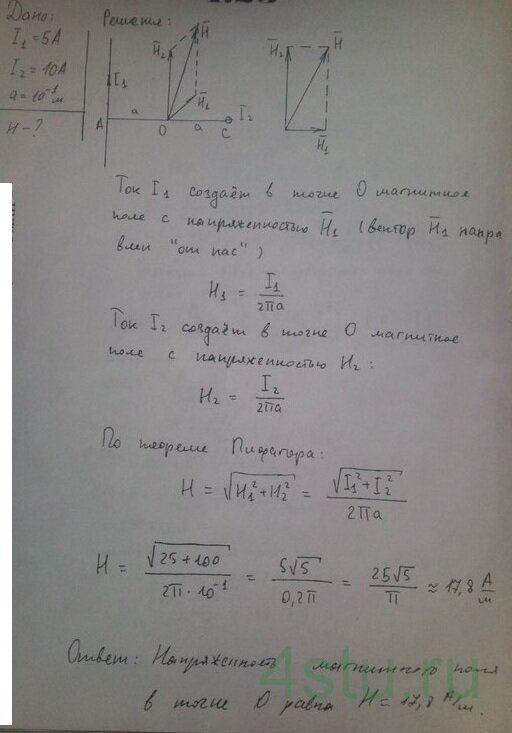 Дано:
I₁ = 5А
I₂ = 10А
a = 10⁻¹ м
H - ?
Решение:
H̄₂ H̄ I₁ H̄₁ I₂ a A O a C
H̄₂ H̄ H̄₁
Ток I₁ создаёт в точке O магнитное
поле с напряженностью H̄₁ (вектор H̄₁ напра
влен "от нас")
H₁ = I₁ / 2πa
Ток I₂ создаёт в точке O магнитное
поле с напряженностью H₂:
H₂ = I₂ / 2πa
По теореме Пифагора:
H = √(H₁² + H₂²) = √(I₁² + I₂²) / 2πa
H = √(25 + 100) / 2π · 10⁻¹ = 5√5 / 0,2π = 25√5 / π ≈ 17,8 А/м
Ответ: Напряженность магнитного поля
в точке O равна H = 17,8 А/м.
4stu.ru